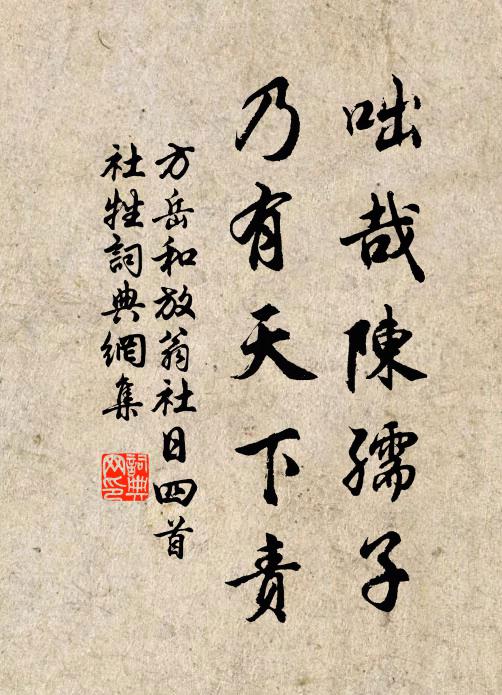 咄哉陳孺子
乃有天下責
方岳和放翁社日四首
社牲詞典網集
詞典網印